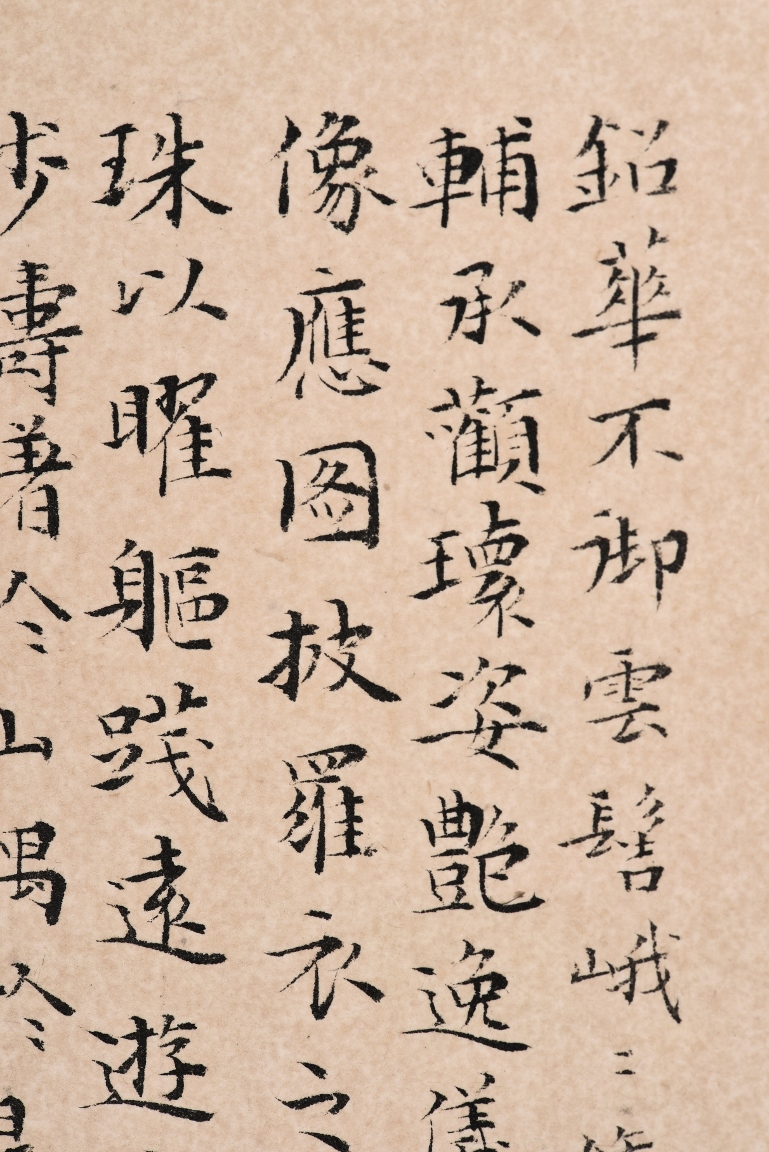 鉛華不御雲髻峨〻
輔承顴瓌姿艶逸儀
像應圖披羅衣之
珠以曜軀踐遠遊
步躊躇於山隅於